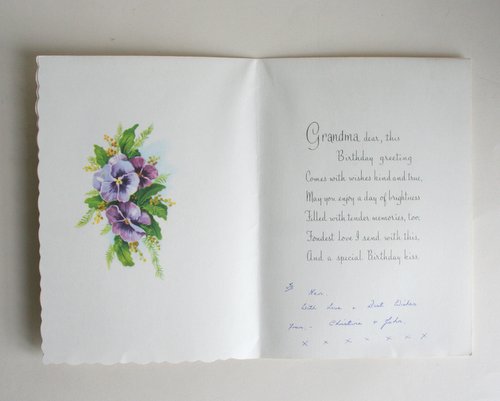 Grandma dear, this
Birthday greeting
Comes with wishes kind and true,
May you enjoy a day of brightness
Filled with tender memories, too.
Fondest love I send with this,
And a special Birthday kiss.
To Nan.
With Love & Best Wishes
From Christine & John
x x x x x x x